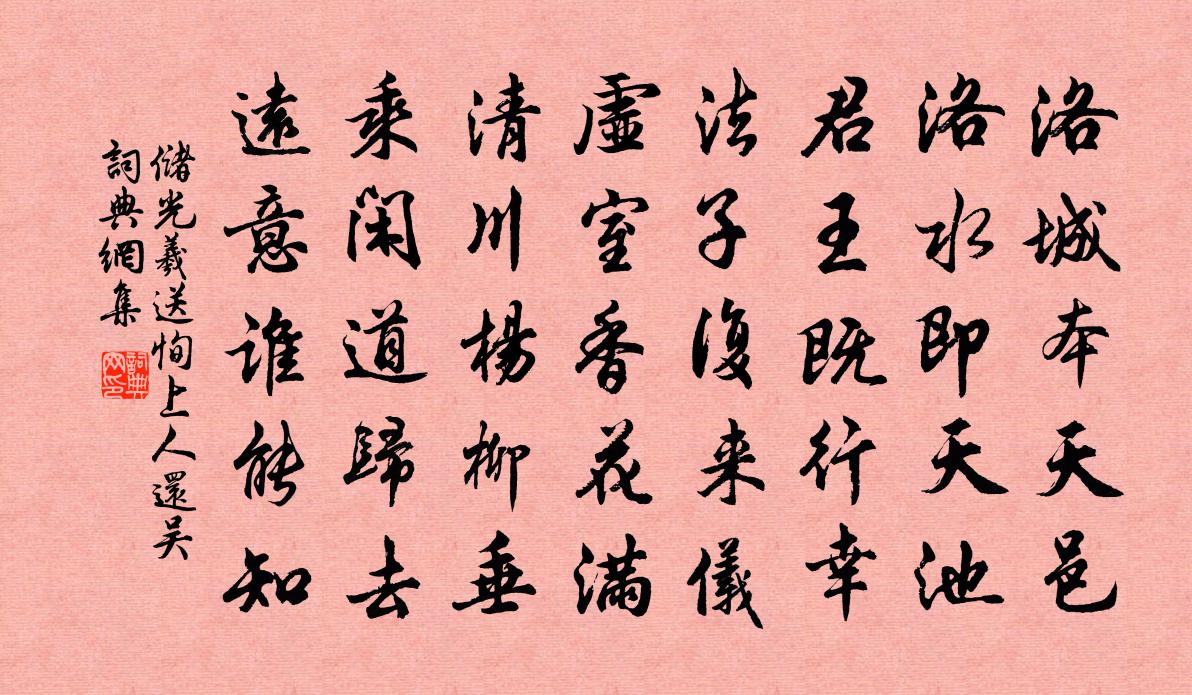 洛城本天邑
洛水即天池
君王既行幸
法子復来儀
虛室香花滿
清川楊柳垂
乘閑道歸去
遠意誰能知
儲光羲送恂上人還吳
詞典網集
詞典網印